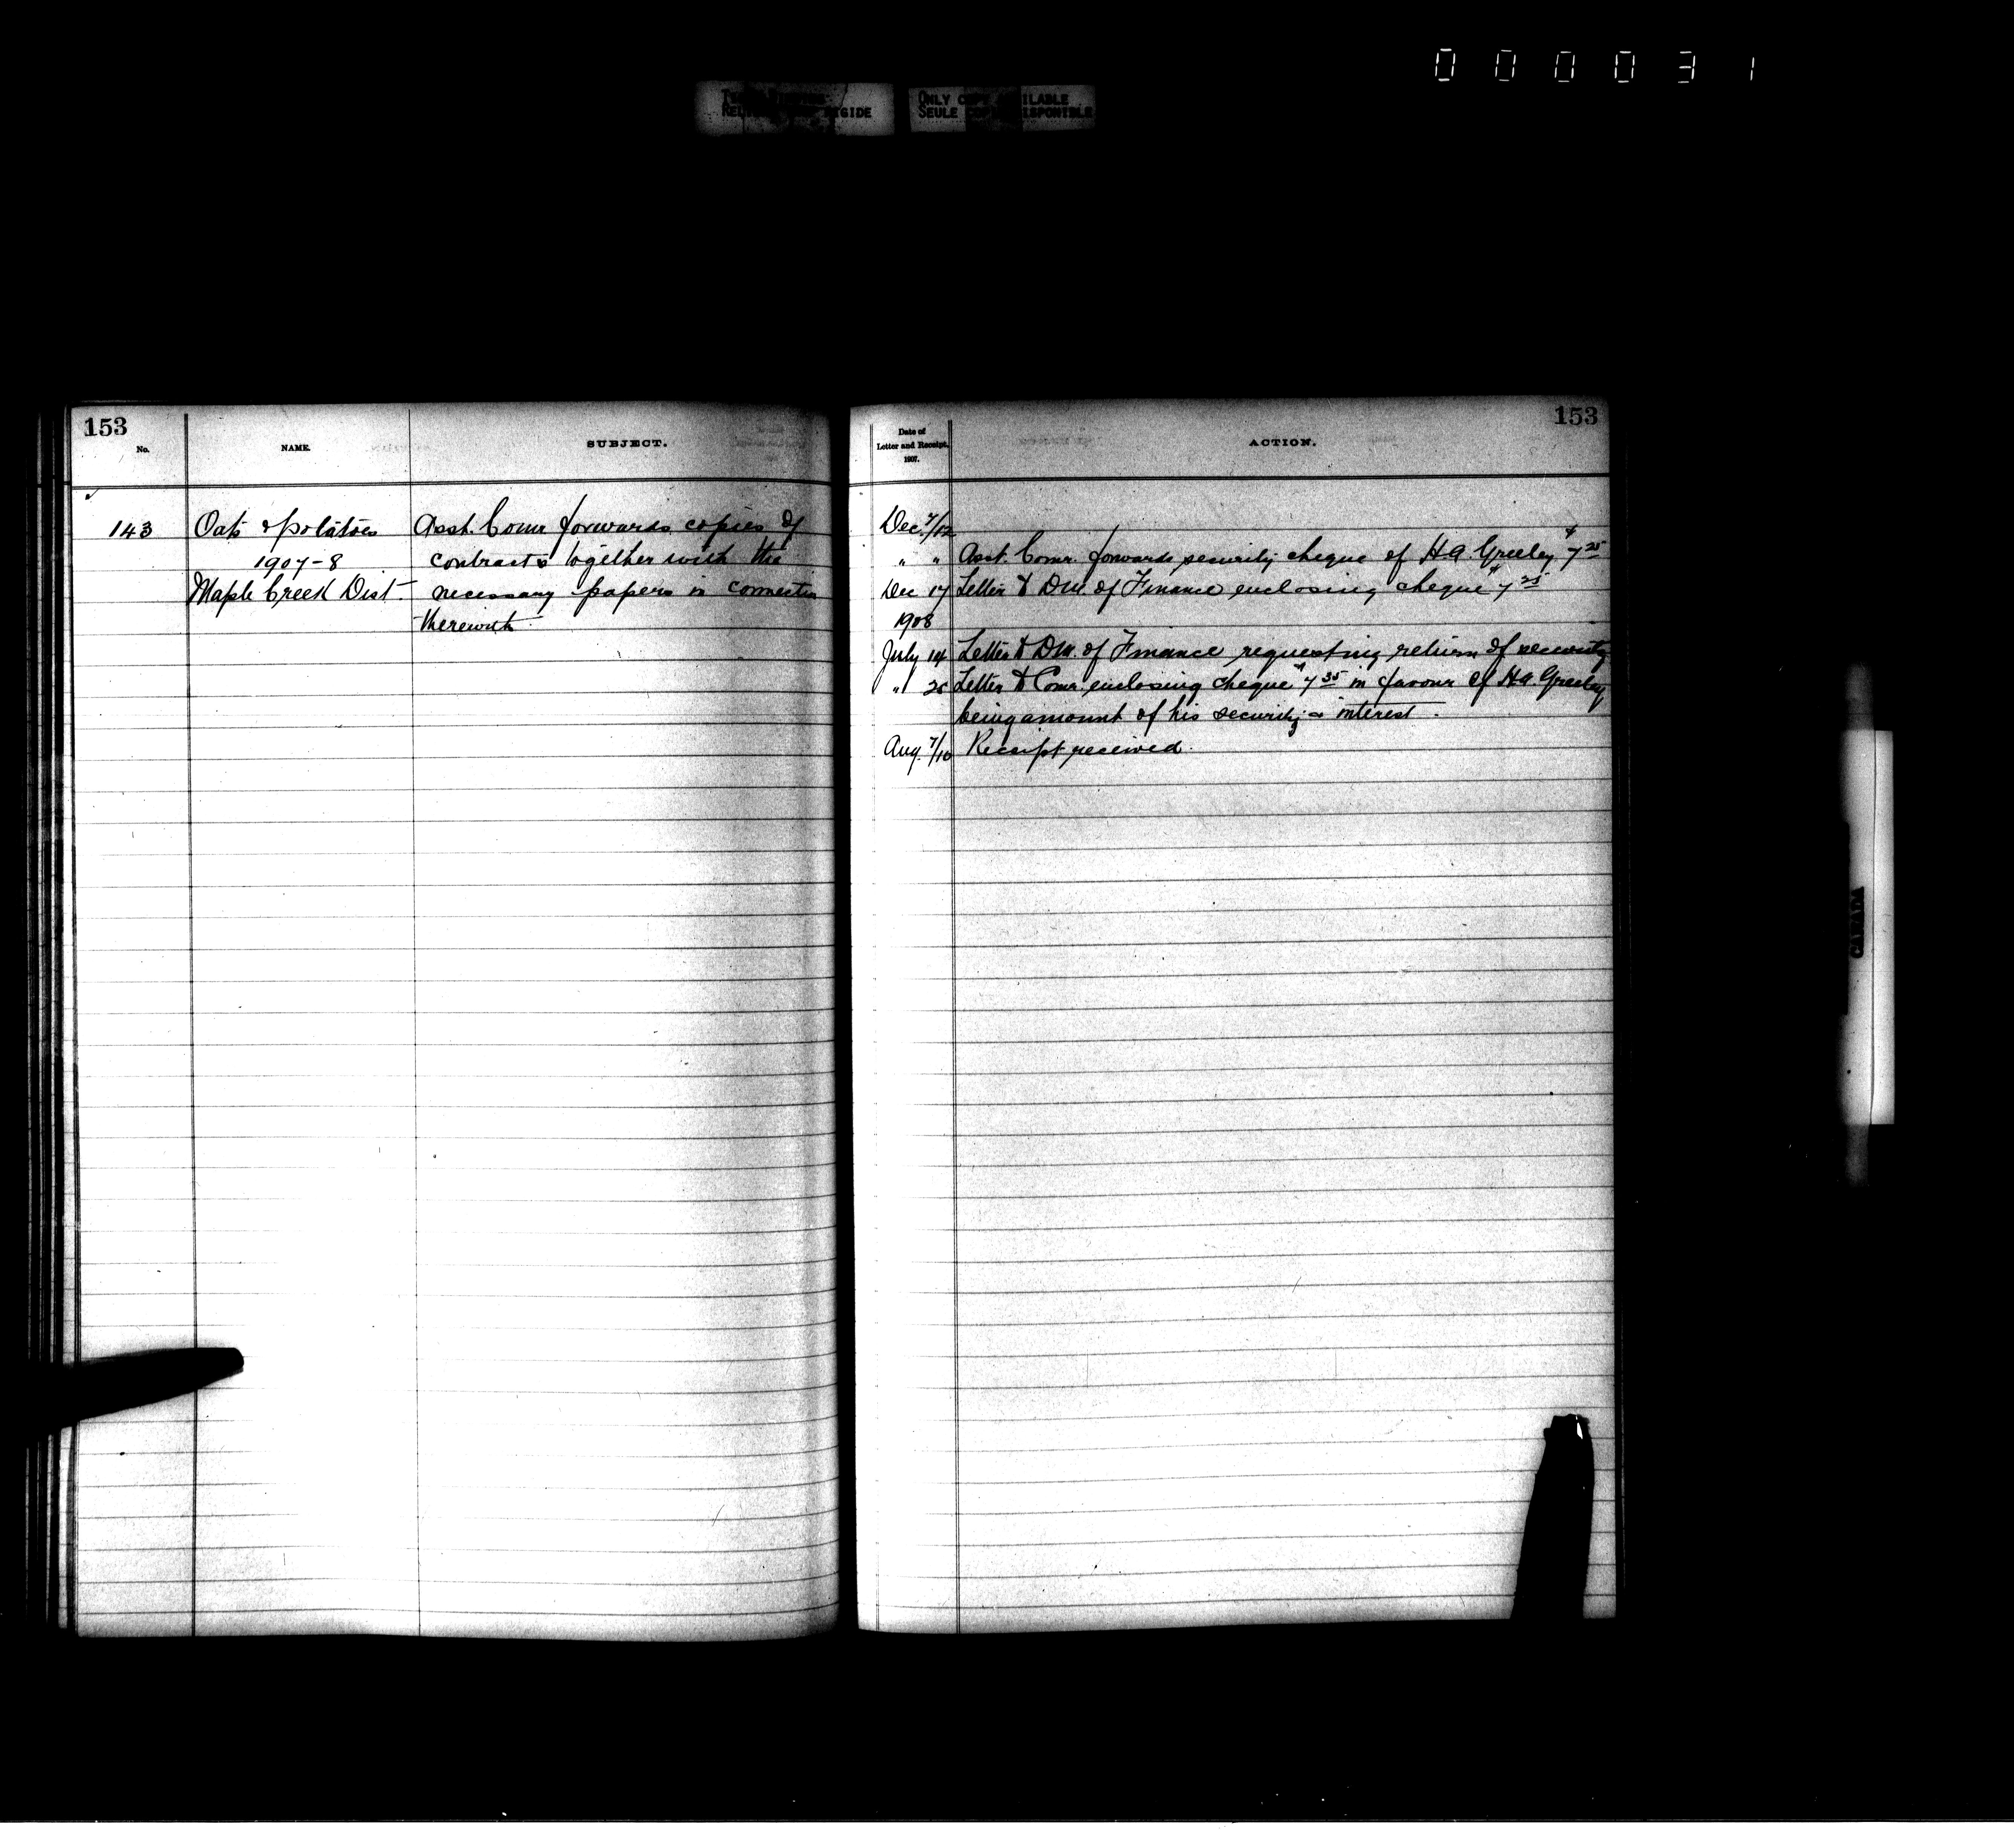 000031
ONLY COPY AVAILABLE
SEULE COPIE DISPONIBLE
153
No.
NAME.
SUBJECT.
143
Oats & potatoes
1907-8
Maple Creek Dist.
Asst. Comr. forwards copies of
contracts together with the
necessary papers in connection
therewith.
153
Date of
Letter and Receipt.
1907.
ACTION.
Dec. 7/12
" " Asst. Comr. forwards security cheque of H.A. Greeley $7 25
Dec 17 Letter to D.M. of Finance enclosing cheque $7 25
1908
July 14 Letter to D.M. of Finance requesting return of security
" 25 Letter to Comr. enclosing cheque $7 35 in favour of H.A. Greeley
being amount of his security & interest.
Aug. 7/10 Receipt received.
CANADA